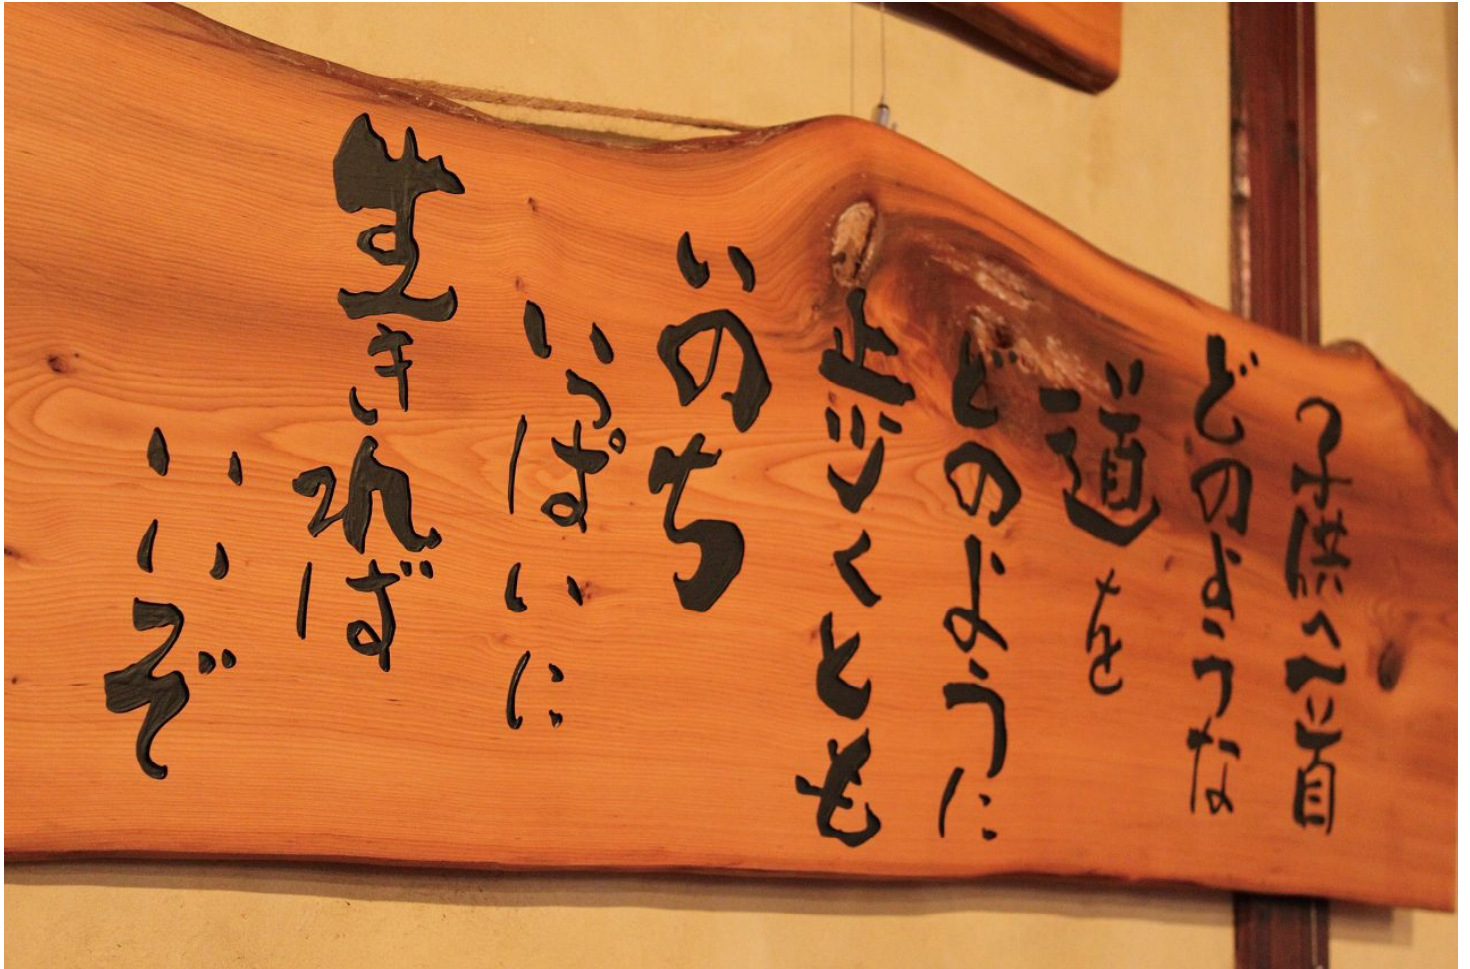 子供へ一首
どのような
道を
どのように
歩くとも
いのち
いっぱいに
生きれば
いいぞ